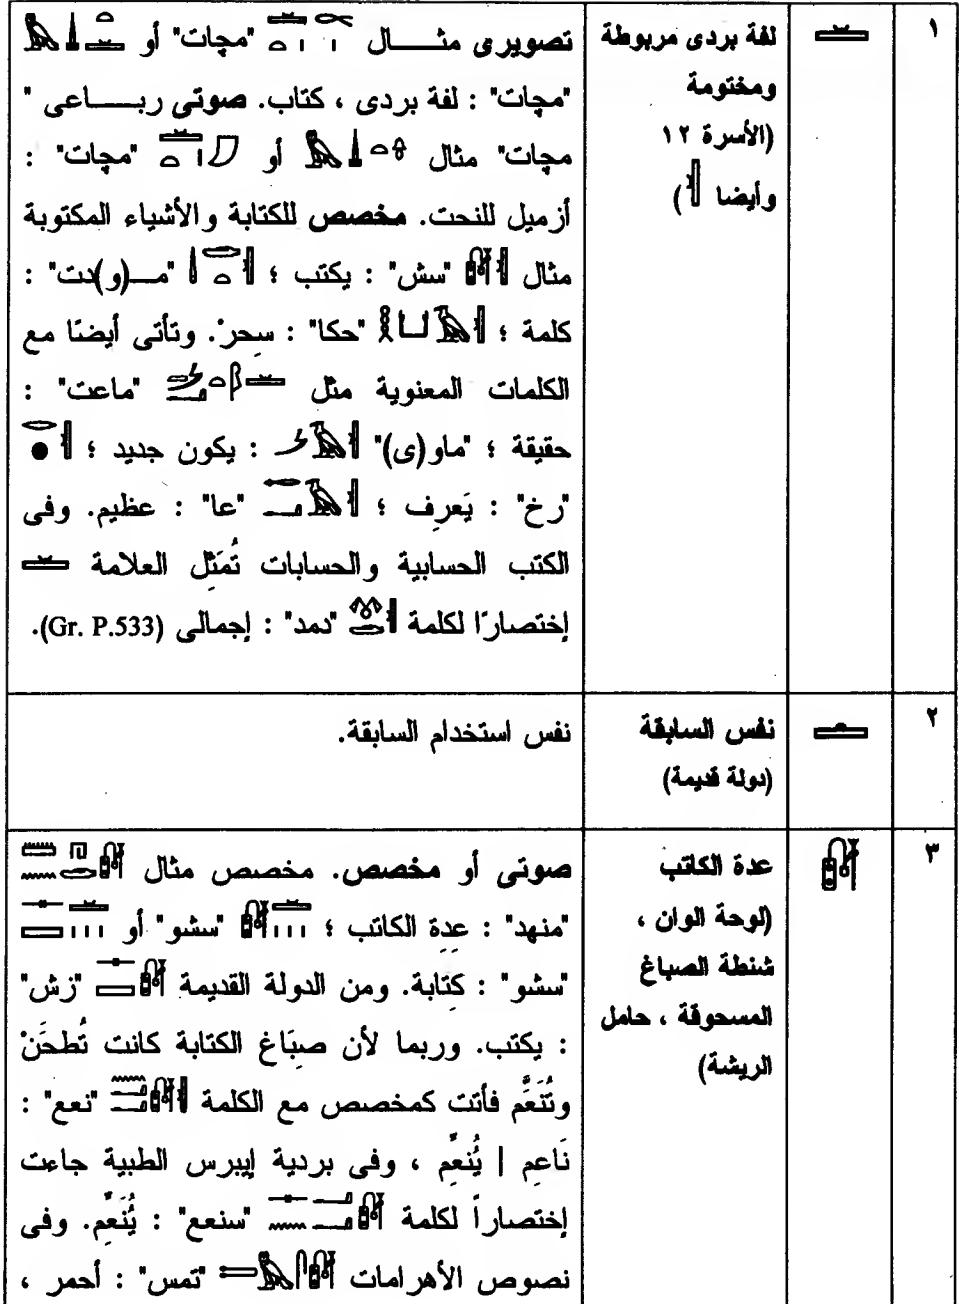 ١
𓏛
لفة بردى مربوطة
ومختومة
(الأسرة ١٢
وأيضا 𓏜)
تصويرى مثـــال "مجات" أو
"مجات" : لفة بردى ، كتاب. صوتى ربـــاعى "
مجات" مثال أو "مجات" :
أزميل للنحت. مخصص للكتابة والأشياء المكتوبة
مثال "سش" : يكتب ؛ "مـ(و)دت" :
كلمة ؛ "حكا" : سحر. وتأتى أيضًا مع
الكلمات المعنوية مثل "ماعت" :
حقيقة ؛ "ماو(ى)" : يكون جديد ؛
"رخ" : يَعرِف ؛ "عا" : عظيم. وفى
الكتب الحسابية والحسابات تُمَثِل العلامة 𓏛
إختصارًا لكلمة "دمد" : إجمالى (Gr. P.533).
٢
𓏝
نفس السابقة
(دولة قديمة)
نفس استخدام السابقة.
٣
𓏞
عدة الكاتب
(لوحة الوان ،
شنطة الصباغ
المسحوقة ، حامل
الريشة)
صوتى أو مخصص. مخصص مثال
"منهد" : عِدة الكاتب ؛ "سشو" أو
"سشو" : كِتابة. ومن الدولة القديمة "زش"
: يكتب. وربما لأن صبَاغ الكتابة كانت تُطحَنْ
وتُنَعَّم فأتت كمخصص مع الكلمة "نعع" :
نَاعِم | يُنعِّم ، وفى بردية إيبرس الطبية جاءت
إختصاراً لكلمة "سنعع" : يُنَعِّم. وفى
نصوص الأهرامات "تمس" : أحمر ،